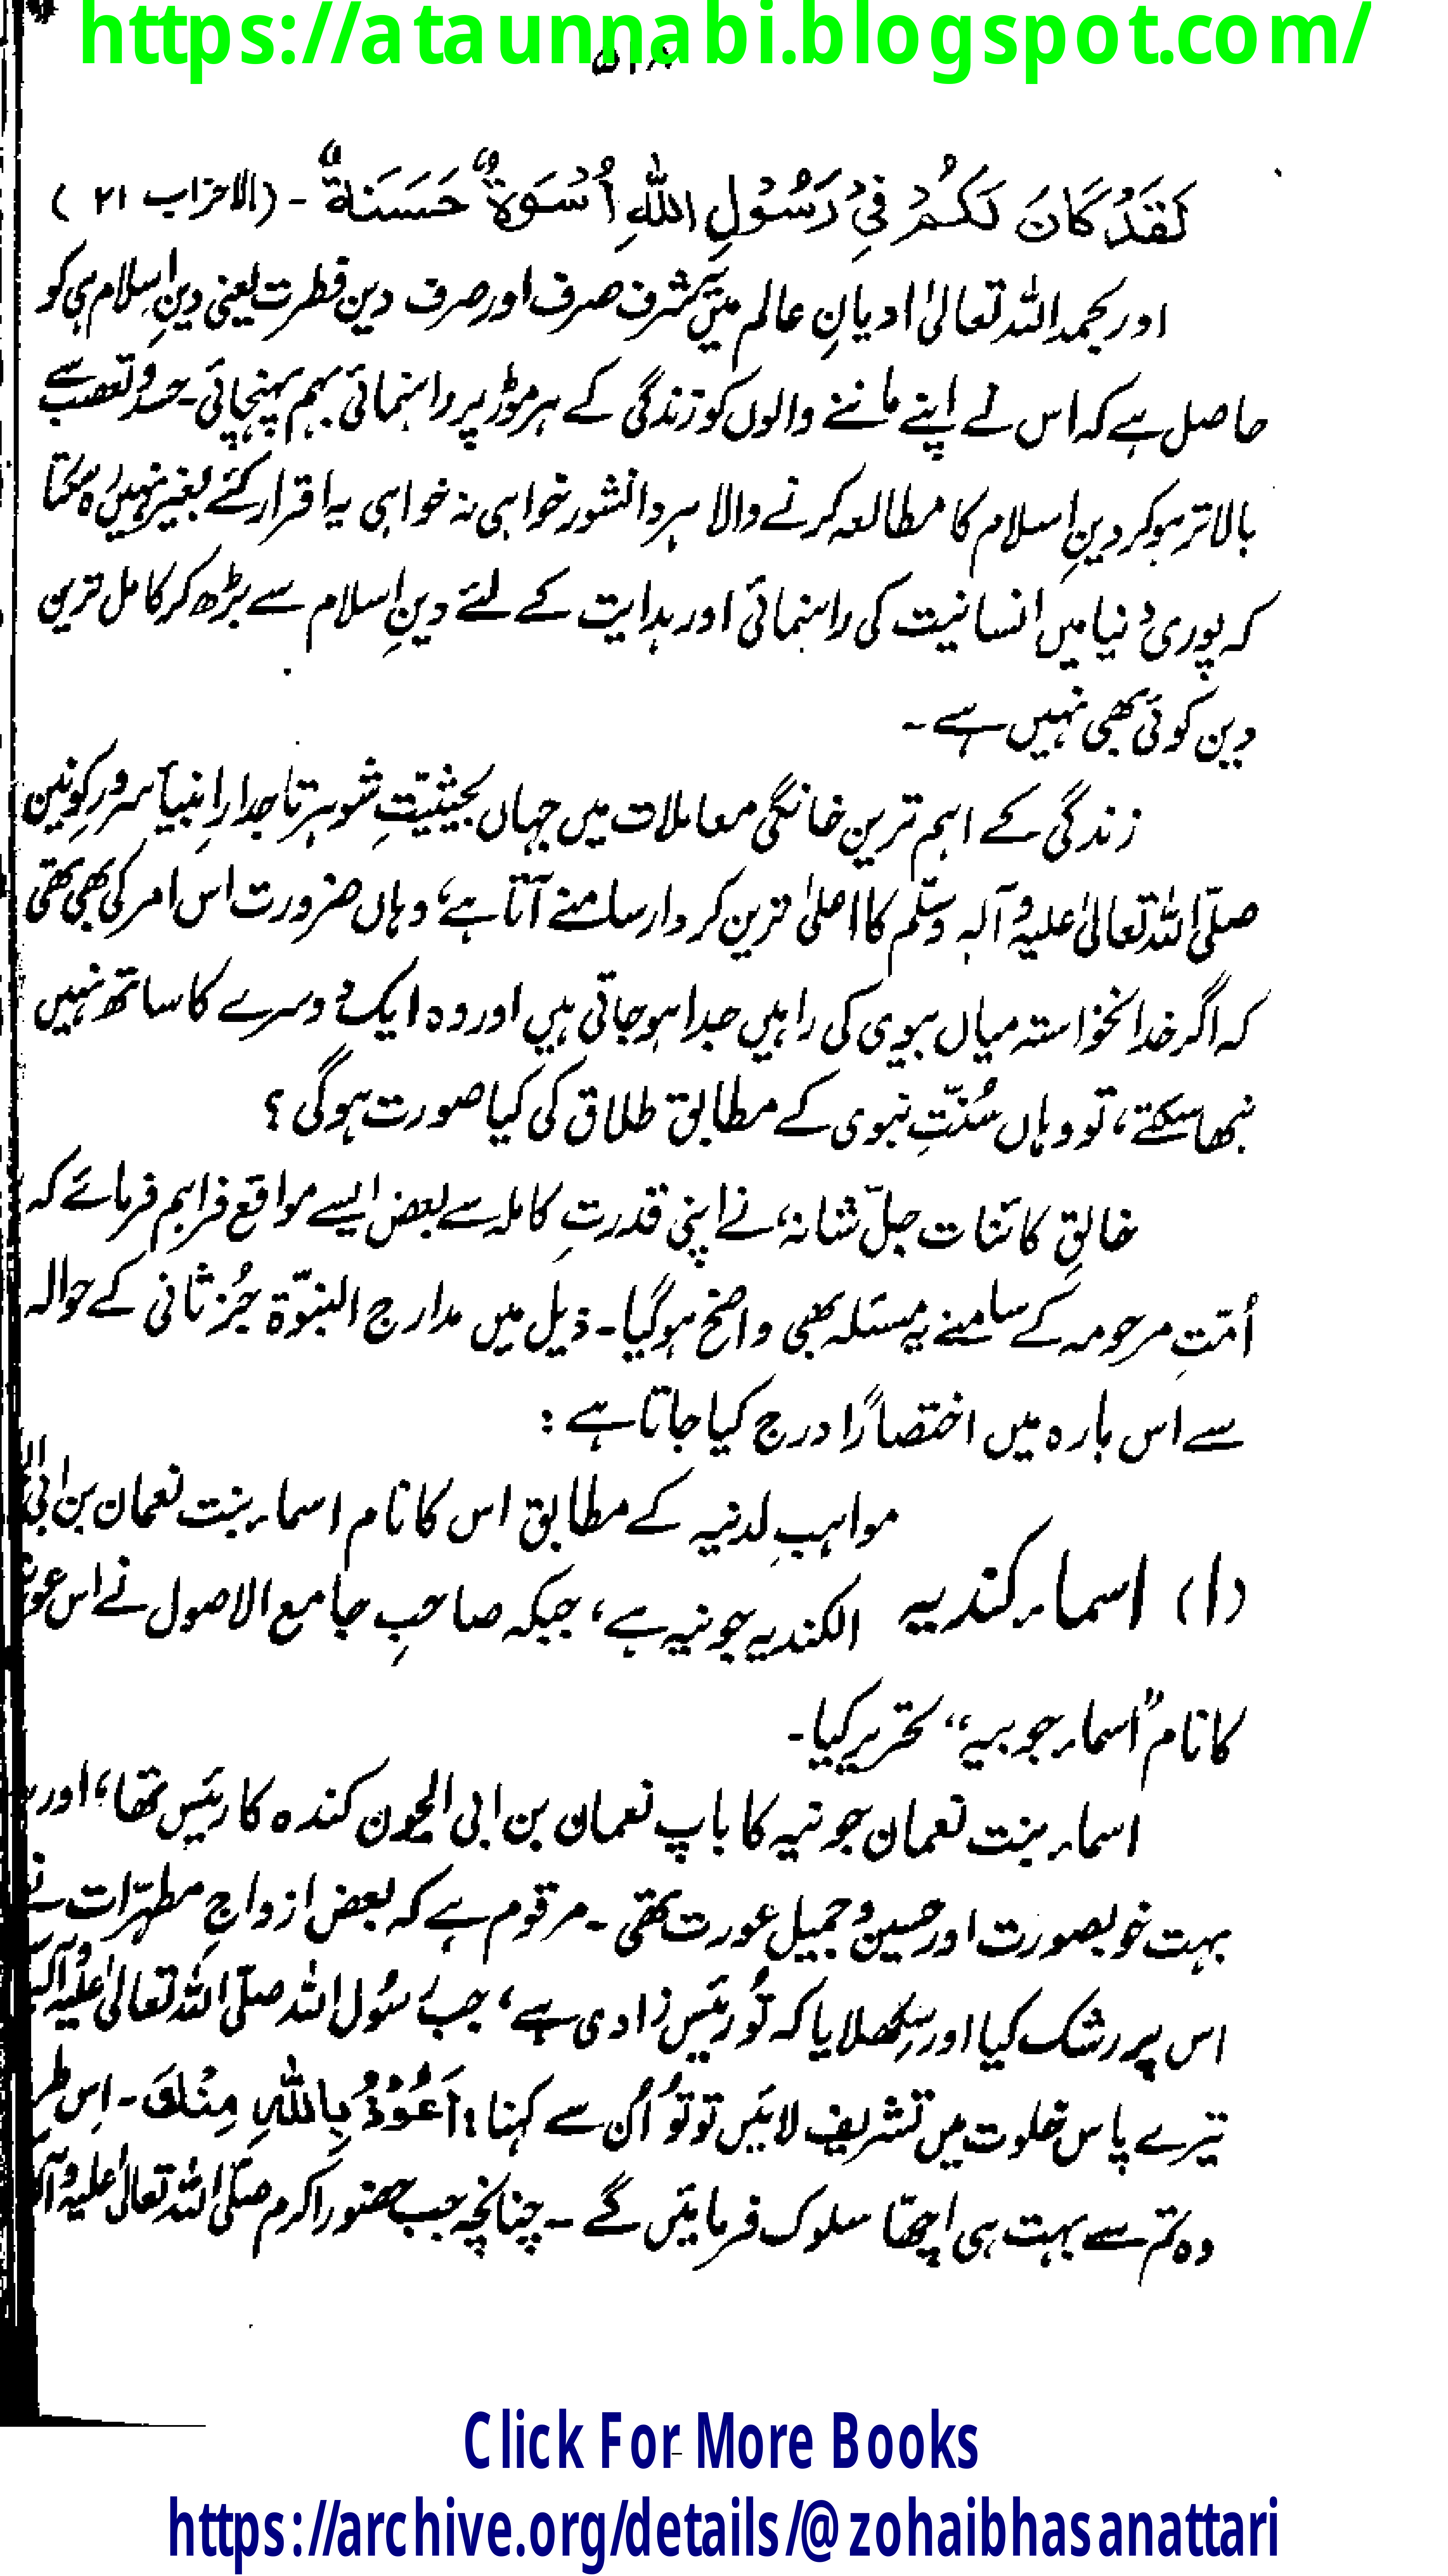 https://ataunnabi.blogspot.com/
۵۱۸
لَقَدْ كَانَ لَكُمْ فِيْ رَسُوْلِ اللّٰهِ اُسْوَةٌ حَسَنَةٌ - (الاحزاب ۲۱)
اور بحمد اللہ تعالیٰ ادیانِ عالم میں یہ شرف صرف اور صرف دین فطرت یعنی دینِ اسلام ہی کو
حاصل ہے کہ اس نے اپنے ماننے والوں کو زندگی کے ہر موڑ پر راہنمائی بہم پہنچائی۔ حسد و تعصب سے
بالاتر ہو کر دینِ اسلام کا مطالعہ کرنے والا ہر دانشور خواہی نہ خواہی یہ اقرار کئے بغیر نہیں رہ سکتا
کہ پوری دنیا میں انسانیت کی راہنمائی اور ہدایت کے لئے دینِ اسلام سے بڑھ کر کامل ترین
دین کوئی بھی نہیں ہے۔
زندگی کے اہم ترین خانگی معاملات میں جہاں بحیثیتِ شوہر تاجدارِ انبیاء سرورِ کونین
صلّی اللہ تعالیٰ علیہ وآلہ وسلّم کا اعلیٰ ترین کردار سامنے آتا ہے، وہاں ضرورت اس امر کی بھی تھی
کہ اگر خدانخواستہ میاں بیوی کی راہیں جدا ہو جاتی ہیں اور وہ ایک دوسرے کا ساتھ نہیں
نبھا سکتے، تو وہاں سُنّتِ نبوی کے مطابق طلاق کی کیا صورت ہوگی؟
خالقِ کائنات جلّ شانہ، نے اپنی قدرتِ کاملہ سے بعض ایسے مواقع فراہم فرمائے کہ
اُمّتِ مرحومہ کے سامنے یہ مسئلہ بھی واضح ہو گیا۔ ذیل میں مدارج النبوّۃ جُز ثانی کے حوالہ
سے اس بارہ میں اختصارًا درج کیا جاتا ہے:
مواہبِ لدنیہ کے مطابق اس کا نام اسماء بنت نعمان بن ابی
(۱) اسماء کندیہ
الکندیہ جونیہ ہے، جبکہ صاحبِ جامع الاصول نے اس
کا نام "اسماء جوبیہ" تحریر کیا۔
اسماء بنت نعمان جونیہ کا باپ نعمان بن ابی الجون کندہ کا رئیس تھا، اور
بہت خوبصورت اور حسین و جمیل عورت تھی۔ مرقوم ہے کہ بعض ازواجِ مطہّرات نے
اس پر رشک کیا اور سِکھلایا کہ تُو رئیس زادی ہے، جب رسُول اللہ صلّی اللہ تعالیٰ علیہ وآلہ
تیرے پاس خلوت میں تشریف لائیں تو تُو اُن سے کہنا: اَعُوْذُ بِاللّٰهِ مِنْكَ۔ اِس
وہ تم سے بہت ہی اچھا سلوک فرمائیں گے۔ چنانچہ جب حضور اکرم صلّی اللہ تعالیٰ علیہ وآلہ
Click For More Books
https://archive.org/details/@zohaibhasanattari